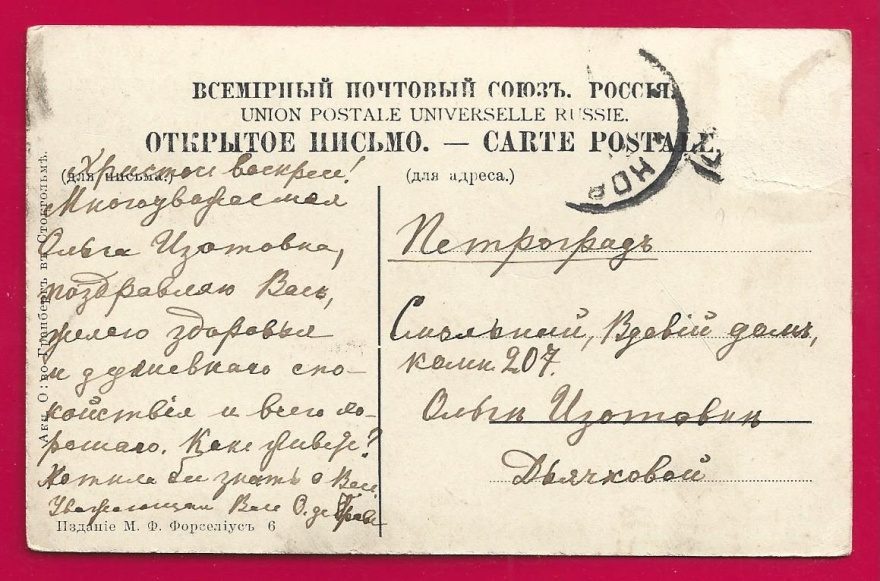 ВСЕМІРНЫЙ ПОЧТОВЫЙ СОЮЗЪ. РОССІЯ.
UNION POSTALE UNIVERSELLE RUSSIE.
ОТКРЫТОЕ ПИСЬМО. — CARTE POSTALE.
(для письма.)
(для адреса.)
Христос воскресе!
Многоуважаемая
Ольга Изотовна,
поздравляю Васъ,
желаю здоровья
и душевнаго спо-
койствія и всего хо-
рошаго. Какъ живете?
Хотела бы знать о Васъ.
Уважающая Васъ О. де
Петроградъ
Смольный, Вдовій домъ,
комн. 207.
Ольгѣ Изотовнѣ
Дьячковой
НОВ
Акц. О:во Гранбергъ въ Стокгольмѣ.
Изданіе М. Ф. Форселіусъ 6